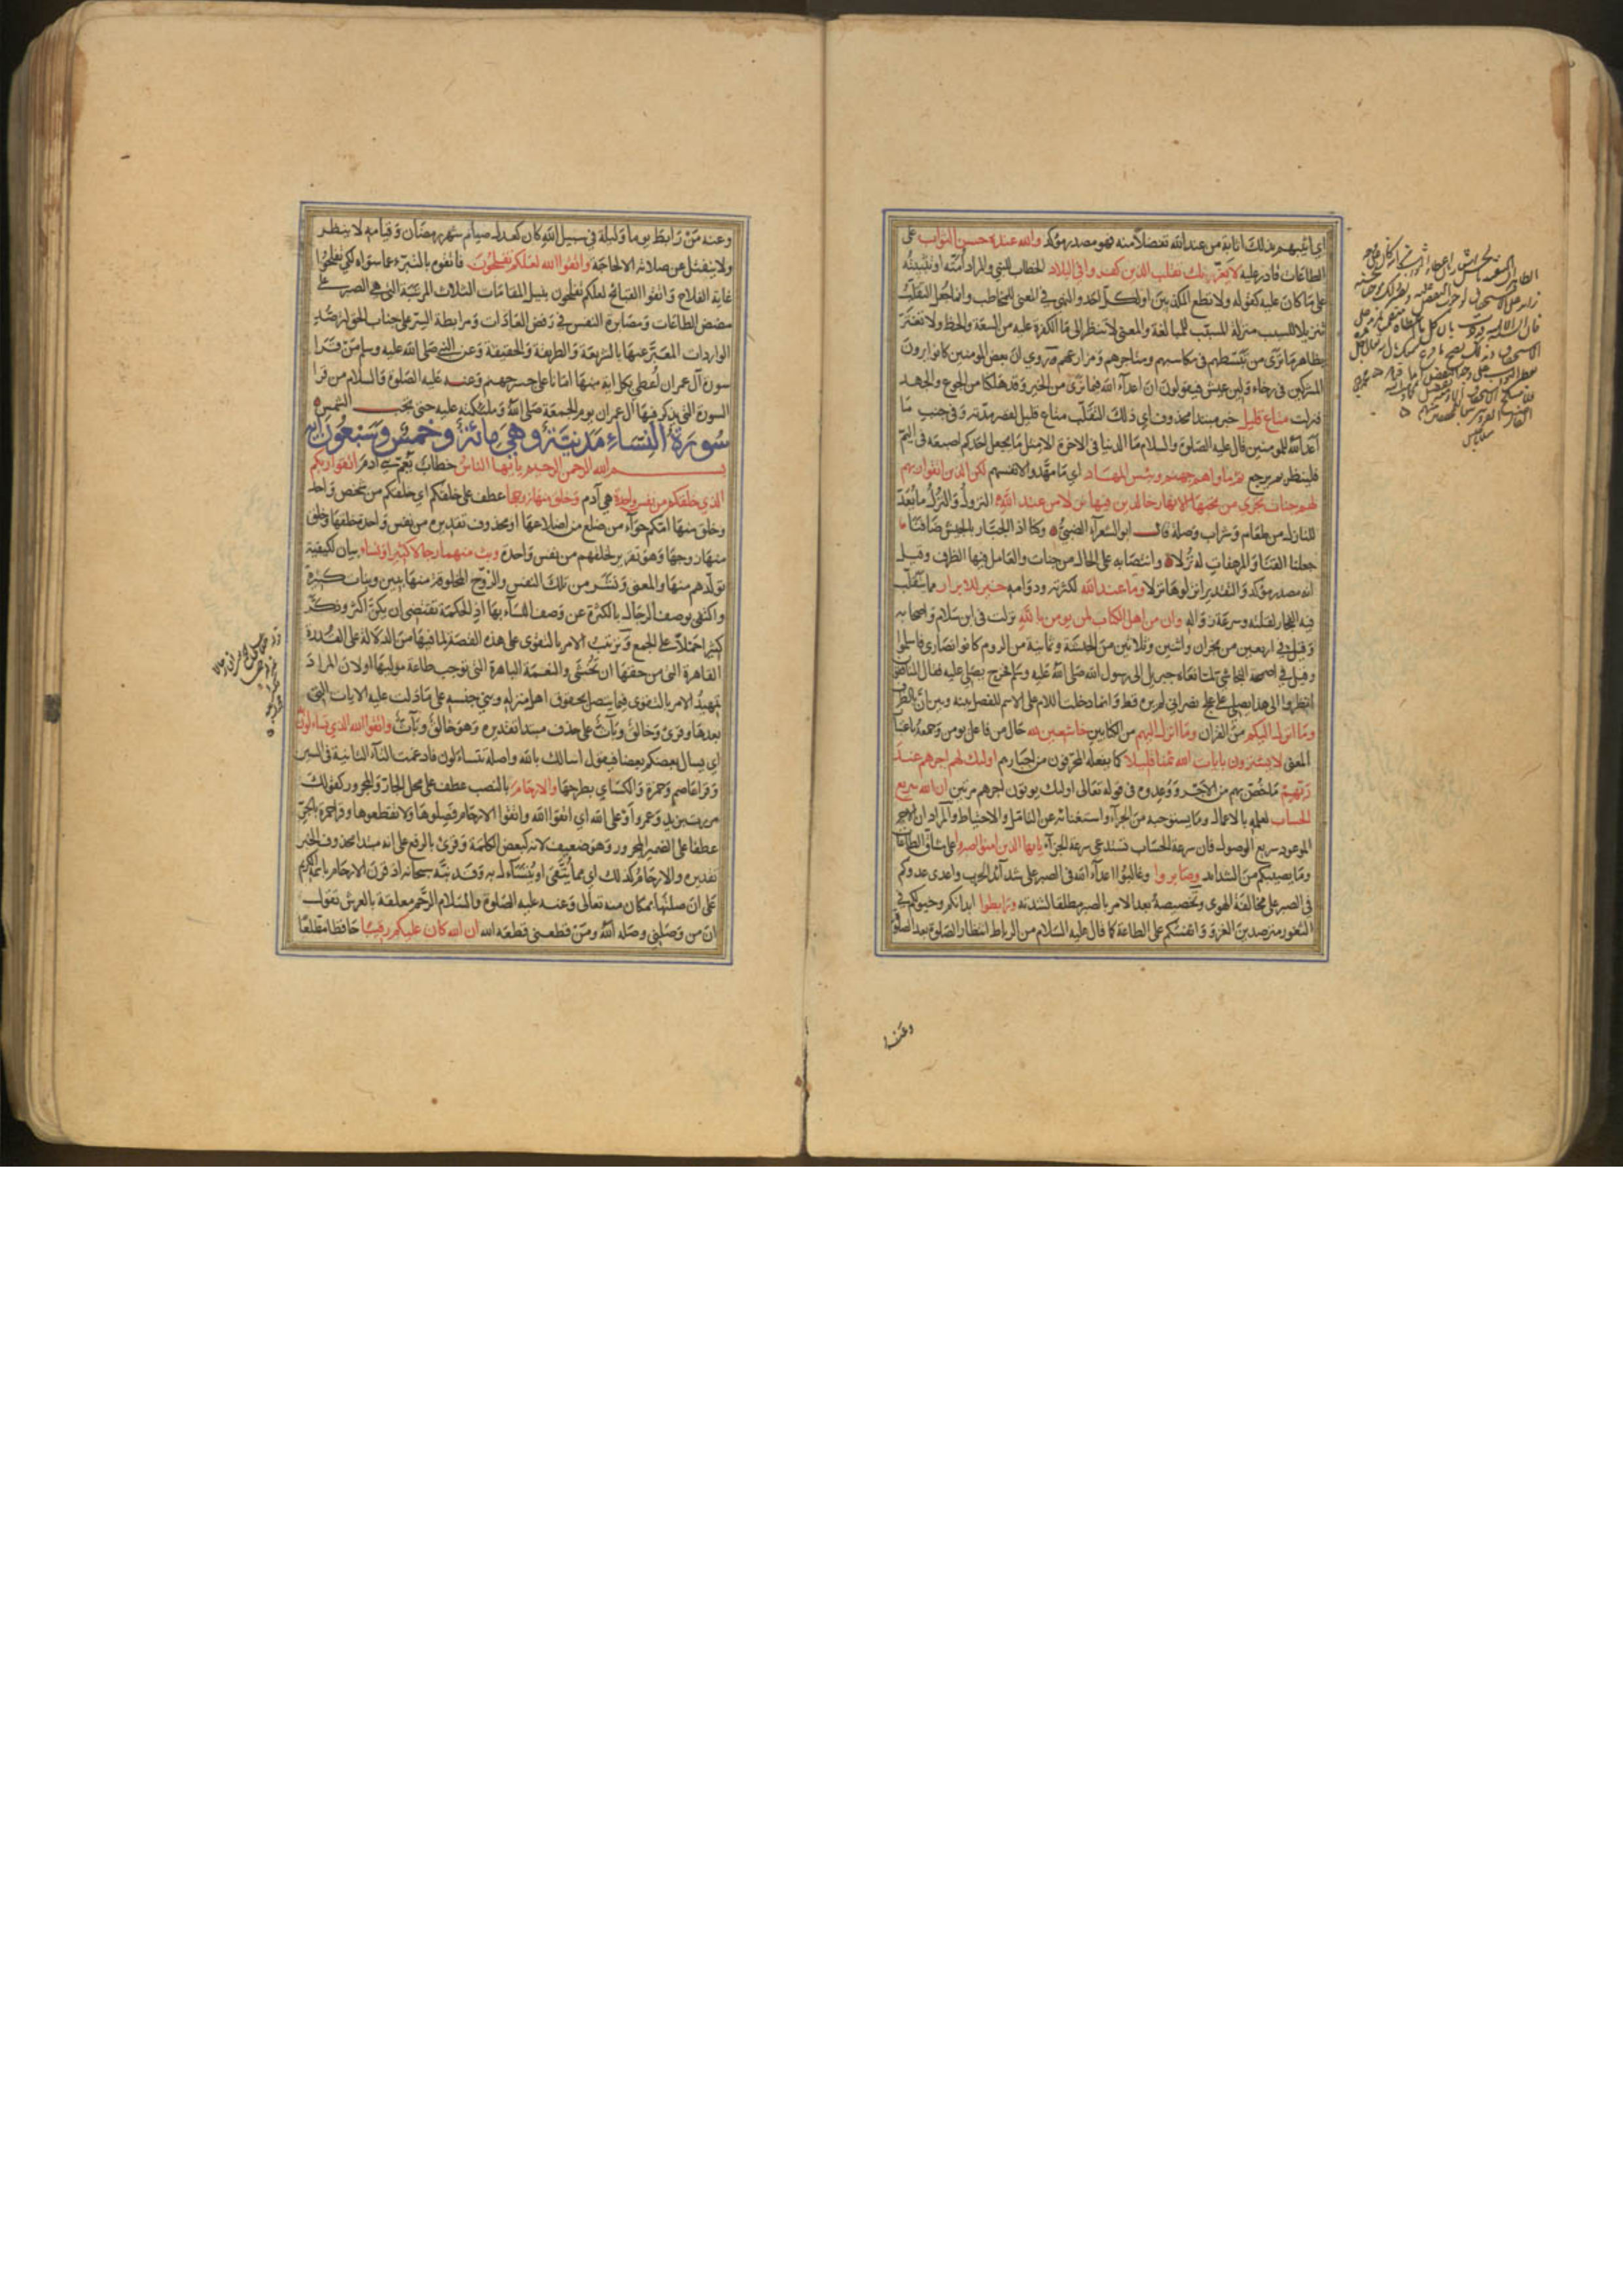 اي اثيبهم بذلك اثابة من عند الله تفضلا منه فهو مصدر مؤكد والله عنده حسن الثواب على
الطاعات قادر عليه لا يغرنك تقلب الذين كفروا في البلاد الخطاب للنبي والمراد امته او تثبيته
على ما كان عليه كقوله ولا تطع المكذبين او لكل احد والنهي في المعنى للمخاطب وانما جعل للتقلب
تنزيلا للسبب منزلة المسبب للمبالغة والمعنى لا تنظر الى ما الكفرة عليه من السعة والحظ ولا تغتر
بظاهر ما ترى من تبسطهم في مكاسبهم ومتاجرهم ومزارعهم وروي ان بعض المومنين كانوا يرون
المشركين في رخاء ولين عيش فيقولون ان اعداء الله فيما نرى من الخير وقد هلكنا من الجوع والجهد
فنزلت متاع قليل خبر مبتدا محذوف اي ذلك التقلب متاع قليل لقصر مدته وفي جنب ما
اعد الله للمومنين قال عليه الصلوة والسلام ما الدنيا في الاخرة الا مثل ما يجعل احدكم اصبعه في اليم
فلينظر بم يرجع ثم ماواهم جهنم وبئس المهاد اي ما مهدوا لانفسهم لكن الذين اتقوا ربهم
لهم جنات تجري من تحتها الانهار خالدين فيها نزلا من عند الله النزل والنزل ما يعد
للنازل من طعام وشراب وصلة قال ابو الشعراء الضبي وكنا اذا الجبار بالجيش ضافنا
جعلنا القنا والمرهفات له نزلا وانتصابه على الحال من جنات والعامل فيها الظرف وقيل
انه مصدر مؤكد والتقدير انزلوها نزلا وما عند الله لكثرته ودوامه خير للابرار مما يتقلب
فيه الفجار لقلته وسرعة زواله وان من اهل الكتاب لمن يومن بالله نزلت في ابن سلام واصحابه
وقيل في اربعين من نجران واثنين وثلاثين من الحبشة وثمانية من الروم كانوا نصارى فاسلموا
وقيل في اصحمة النجاشي لما نعاه جبريل الى رسول الله صلى الله عليه وسلم فخرج يصلي عليه فقال المنافقون
انظروا الى هذا يصلي على علج نصراني لم يره قط وانما دخلت اللام على الاسم للفصل بينه وبين ان بالظرف
وما انزل اليكم من القران وما انزل اليهم من الكتابين خاشعين لله حال من فاعل يومن وجمعه باعتبار
المعنى لا يشترون بايات الله ثمنا قليلا كما يفعله المحرفون من احبارهم اولئك لهم اجرهم عند
ربهم ما خص بهم من الاجر ووعدوه في قوله تعالى اولئك يوتون اجرهم مرتين ان الله سريع
الحساب لعلمه بالاعمال وما يستوجبه من الجزاء واستغنائه عن التامل والاحتياط والمراد ان الاجر
الموعود سريع الوصول فان سرعة الحساب تستدعي سرعة الجزاء يا ايها الذين امنوا اصبروا على مشاق الطاعات
وما يصيبكم من الشدائد وصابروا وغالبوا اعداء الله في الصبر على شدائد الحرب واعدى عدوكم
في الصبر على مخالفة الهوى وتخصيصه بعد الامر بالصبر مطلقا لشدته ورابطوا ابدانكم وخيولكم في
الثغور مترصدين الغزو وانفسكم على الطاعة كما قال عليه السلام من الرباط انتظار الصلوة بعد الصلوة
وعنه
وعنه من رابط يوما وليلة في سبيل الله كان كعدل صيام شهر رمضان وقيامه لا يفطر
ولا ينفتل عن صلاته الا لحاجة واتقوا الله لعلكم تفلحون فاتقوه بالتبرء عما سواه لكي تفلحوا
غاية الفلاح واتقوا القبائح لعلكم تفلحون بنيل المقامات الثلاث المرتبة التي هي الصبر على
مضض الطاعات ومصابرة النفس في رفض العادات ومرابطة السر على جناب الحق لترصد
الواردات المعبر عنها بالشريعة والطريقة والحقيقة وعن النبي صلى الله عليه وسلم من قرا
سورة آل عمران اعطي بكل اية منها امانا على جسر جهنم وعنه عليه الصلوة والسلام من قرا
السورة التي يذكر فيها ال عمران يوم الجمعة صلى الله وملئكته عليه حتى تحجب الشمس
سورة النساء مدنية وهي مائة وخمس وسبعون اية
بسم الله الرحمن الرحيم يا ايها الناس خطاب يعم بني ادم اتقوا ربكم
الذي خلقكم من نفس واحدة هي آدم وخلق منها زوجها عطف على خلقكم اي خلقكم من شخص واحد
وخلق منها امكم حواء من ضلع من اضلاعها او محذوف تقديره من نفس واحدة خلقها وخلق
منها زوجها وهو تقرير لخلقهم من نفس واحدة وبث منهما رجالا كثيرا ونساء بيان لكيفية
تولدهم منها والمعنى ونشر من تلك النفس والزوج المخلوقة منها بنين وبنات كثيرة
واكتفى بوصف الرجال بالكثرة عن وصف النساء بها اذ الحكمة تقتضي ان يكن اكثر وذكر
كثيرا حملا على الجمع وترتيب الامر بالتقوى على هذه القصة لما فيها من الدلالة على القدرة
القاهرة التي من حقها ان تخشى والنعمة الباهرة التي توجب طاعة موليها او لان المراد
تمهيد الامر بالتقوى فيما يتصل بحقوق اهل منزله وبني جنسه على ما دلت عليه الايات التي
بعدها وقرئ وخالق وباث على حذف مبتدا تقديره وهو خالق وباث واتقوا الله الذي تساءلون به
اي يسال بعضكم بعضا فيقول اسالك بالله واصله تتساءلون فادغمت التاء الثانية في السين
وقرا عاصم وحمزة والكسائي بطرحها والارحام بالنصب عطف على محل الجار والمجرور كقولك
مررت بزيد وعمروا او على الله اي اتقوا الله واتقوا الارحام فصلوها ولا تقطعوها وقرا حمزة بالجر
عطفا على الضمير المجرور وهو ضعيف لانه كبعض الكلمة وقرئ بالرفع على انه مبتدا محذوف الخبر
تقديره والارحام كذلك اي مما يتقى او يتساءل به وقد نبه سبحانه اذ قرن الارحام باسمه الكريم
على ان صلتها بمكان منه تعالى وعنه عليه الصلوة والسلام الرحم معلقة بالعرش تقول
ان من وصلني وصله الله ومن قطعني قطعه الله ان الله كان عليكم رقيبا حافظا مطلعا